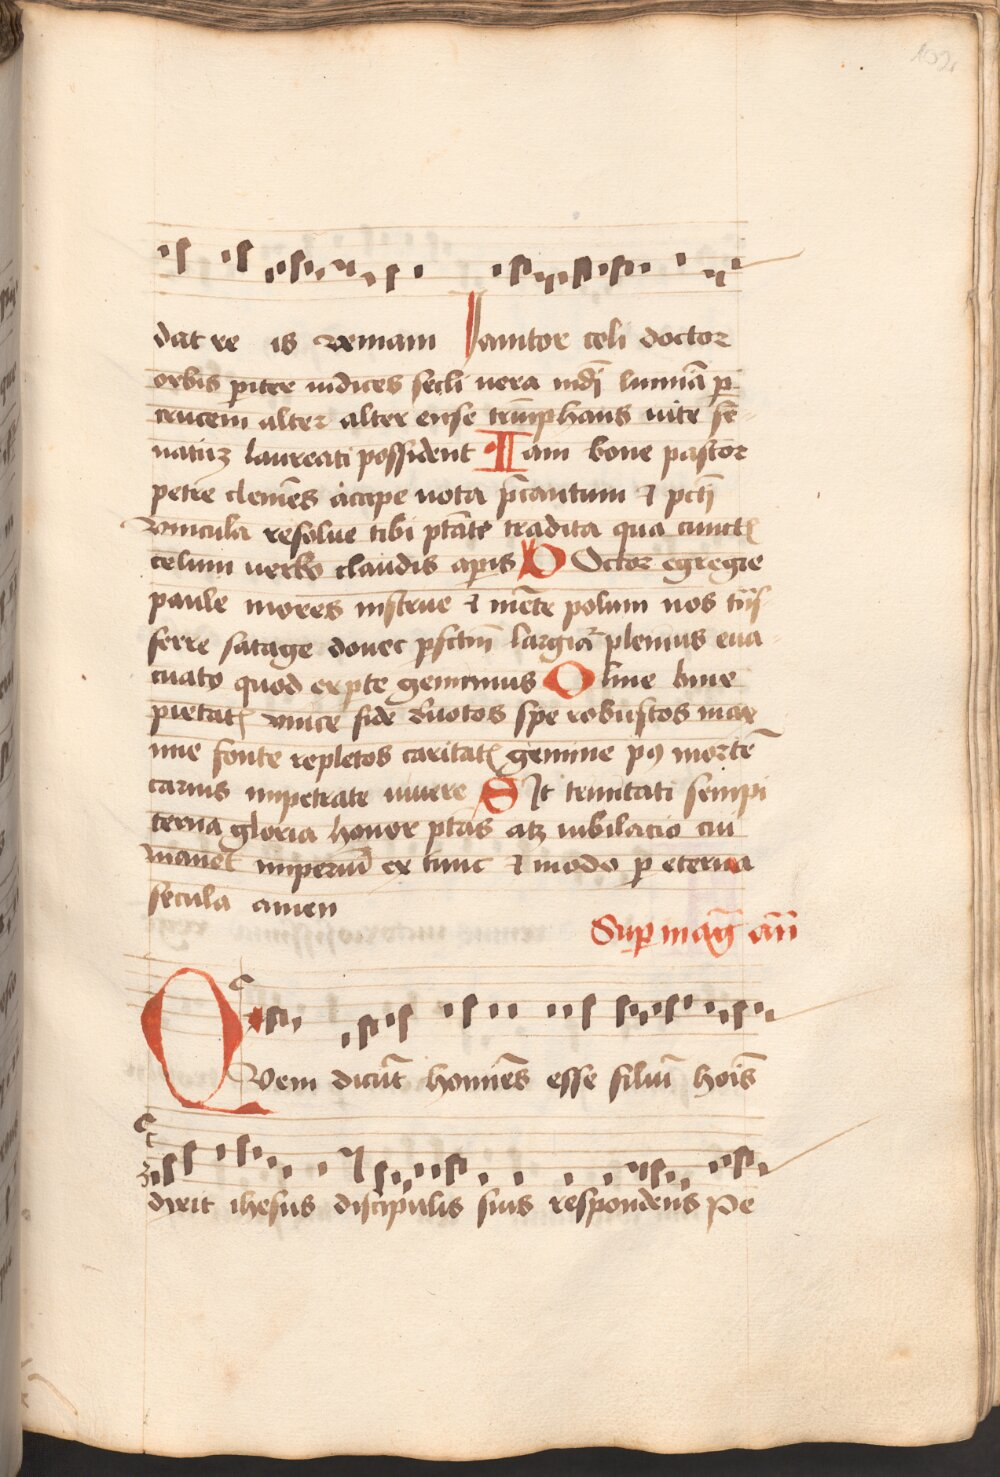 102
dat re is veniam Ianitor celi doctor
orbis piter iudices secli vera mūdi lumīa p
crucem alter alter ense triūphans vite se
natūz laureati possident Iam bone pastor
petre clemēs accipe vota p̄cantum ⁊ pctī
vincula resolue tibi ptāte tradita qua cunctꝭ
celum verbo claudis apis Doctor egregie
paule mores instrue ⁊ mēte polum nos trās
ferre satage donec pfctm̄ largiar̄ plenius eua
cuato quod ex pte gerimus Oliue bine
pietatꝭ vnice fide dēuotos spe robustos max
ime fonte repletos caritatꝭ gemine pꝰ mortē
carnis impetrate viuere Sit trinitati sempi
terna gloria honor ptās atqꝫ iubilacio cui
manet imperiū ex tunc ⁊ modo p eterna
secula amen
Sup mag̅ an̅
Quem dicūt homīes esse filiū hoīs
dixit ihesus discipulis suis respondens Pe